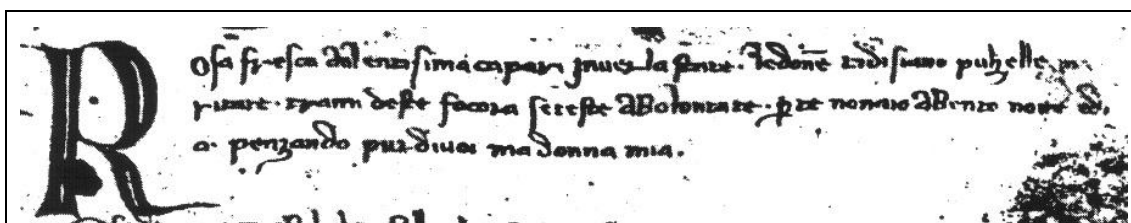 Rosa fresca aulentisima capari jnuer la state. ledōne tidisiano pulzelle ma
ritate. trami deste focora seteste abolontate. ꝑte nonaio abento notte
a. penzando pur diuoi madonna mia.